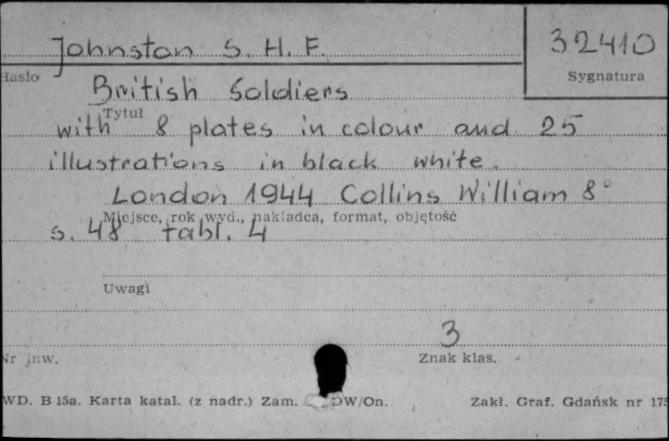 Johnston S. H. F.
32410
Hasło
Sygnatura
British Soldiers
Tytuł
with 8 plates in colour and 25
illustrations in black white.
London 1944 Collins William 8°
Miejsce, rok wyd., nakładca, format, objętość
s. 48 tabl. 4
Uwagi
3
Nr inw.
Znak klas.
WD. B 15a. Karta katal. (z nadr.) Zam. DW/On. Zakł. Graf. Gdańsk nr 175